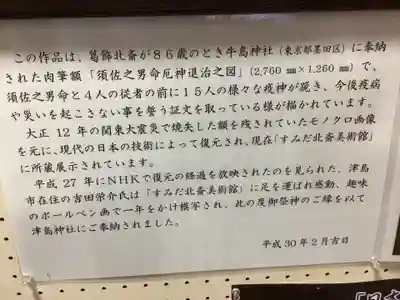 この作品は、葛飾北斎が86歳のとき牛島神社(東京都墨田区)に奉納
された肉筆額「須佐之男命厄神退治之図」(2,760㎜×1,260㎜)で、
須佐之男命と4人の従者の前に15人の様々な疫神が跪き、今後疫病
や災いを起こさない事を誓う証文を取っている様が描かれています。
大正12年の関東大震災で焼失した額を残されていたモノクロ画像
を元に、現代の日本の技術によって復元され、現在「すみだ北斎美術館」
に所蔵展示されています。
平成27年にNHKで復元の経過を放映されたのを見られた、津島
市在住の吉田栄介氏は「すみだ北斎美術館」に足を運ばれ感動、趣味
のボールペン画で一年をかけ模写され、此の度御祭神のご縁を以て
津島神社にご奉納されました。
平成30年2月吉日